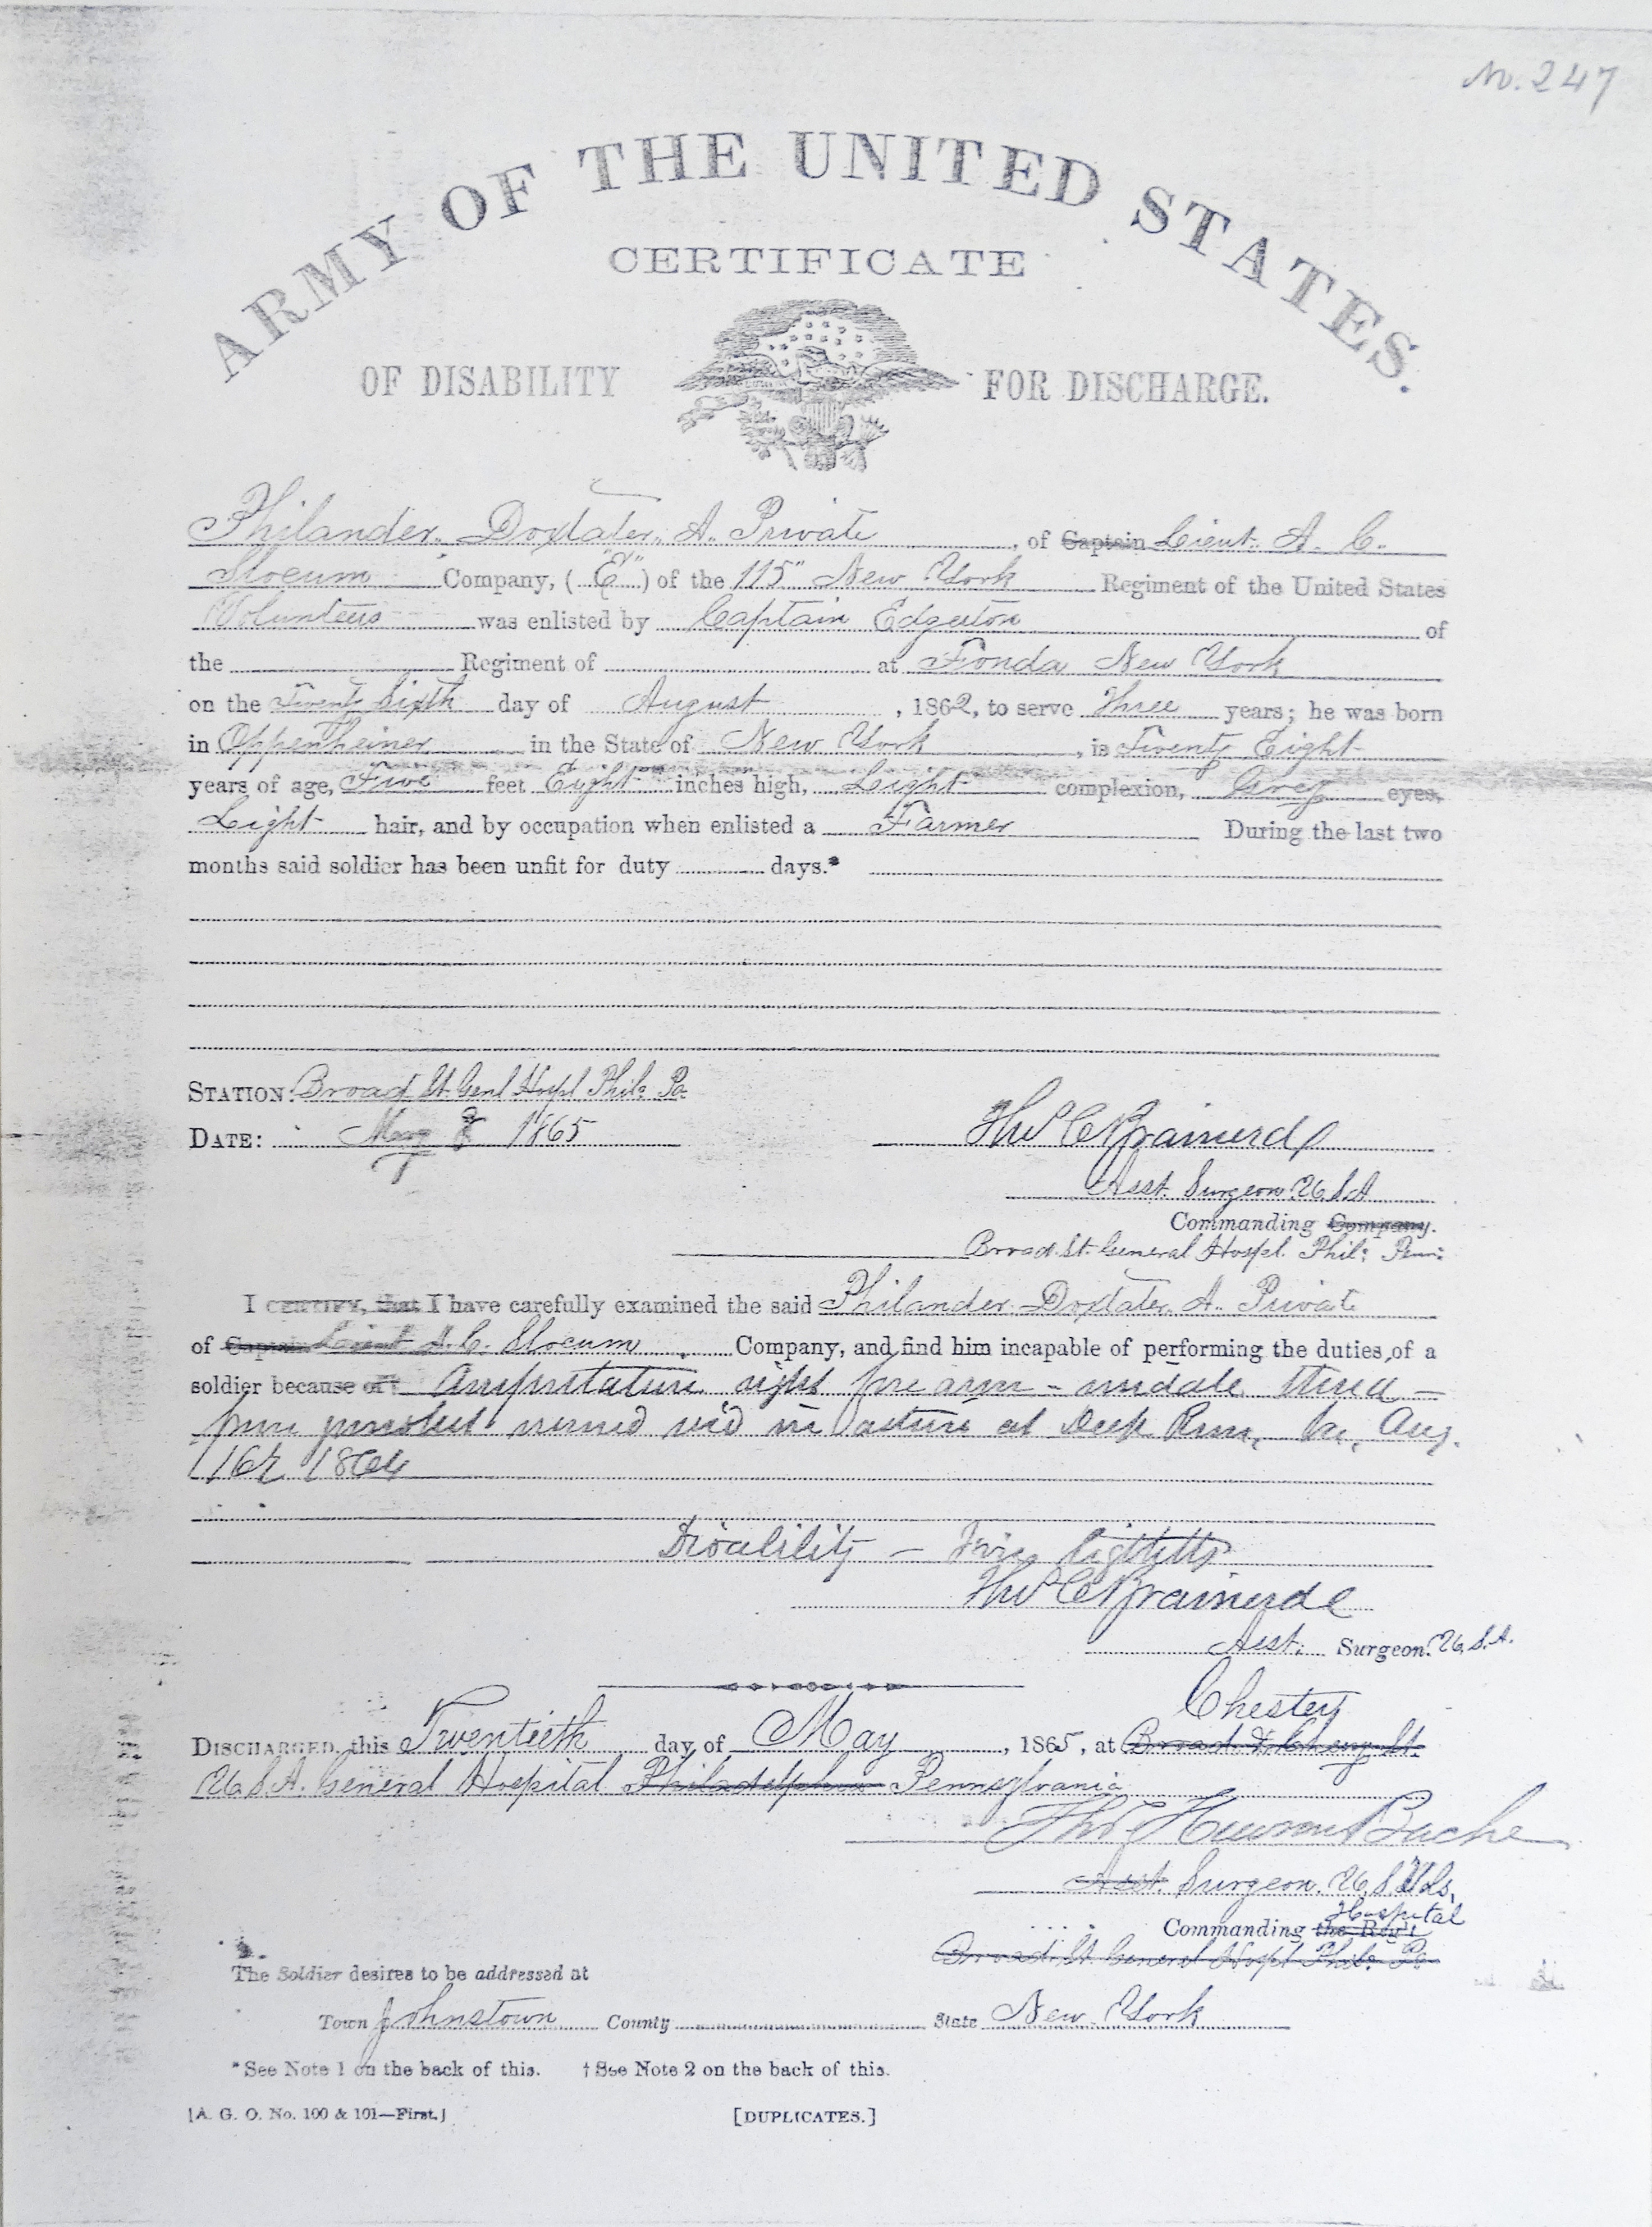 No. 247
ARMY OF THE UNITED STATES.
CERTIFICATE
OF DISABILITY FOR DISCHARGE.
Philander Doxtater A. Private, of Captain Lieut. A. C.
Slocum Company, ("E") of the 115" New York Regiment of the United States
Volunteers was enlisted by Captain Edgerton of
the Regiment of at Fonda New York
on the Twenty Sixth day of August, 1862, to serve Three years; he was born
in Oppenheimer in the State of New York, is Twenty Eight
years of age, Five feet Eight inches high, Light complexion, Grey eyes,
Light hair, and by occupation when enlisted a Farmer During the last two
months said soldier has been unfit for duty days.*
STATION: Broad St. Genl Hospl Phila Pa.
DATE: May 8 1865
Thos C Brainerd
Asst. Surgeon U.S.A
Commanding Company.
Broad St. General Hospl. Phil: Penn:
I CERTIFY, that I have carefully examined the said Philander Doxtater A. Private
of Captain Lieut A. C. Slocum Company, and find him incapable of performing the duties of a
soldier because of† Amputation right fore arm - middle third -
from gunshot wound rec'd in action at Deep Run, Va, Aug.
16th 1864
Disability —
Thos C Brainerd
Asst. Surgeon. U.S.A.
Chester
DISCHARGED, this Twentieth day of May, 1865, at Broad & Cherry St.
U.S.A. General Hospital Philadelphia Pennsylvania
Thos Hewson Bache
Asst. Surgeon. U.S. Vols,
Hospital
Commanding the Reg't
Broad St. General Hospl Phila: Pa
The Soldier desires to be addressed at
Town Johnstown County State New York
*See Note 1 on the back of this. †See Note 2 on the back of this.
[A. G. O. No. 100 & 101—First.] [DUPLICATES.]